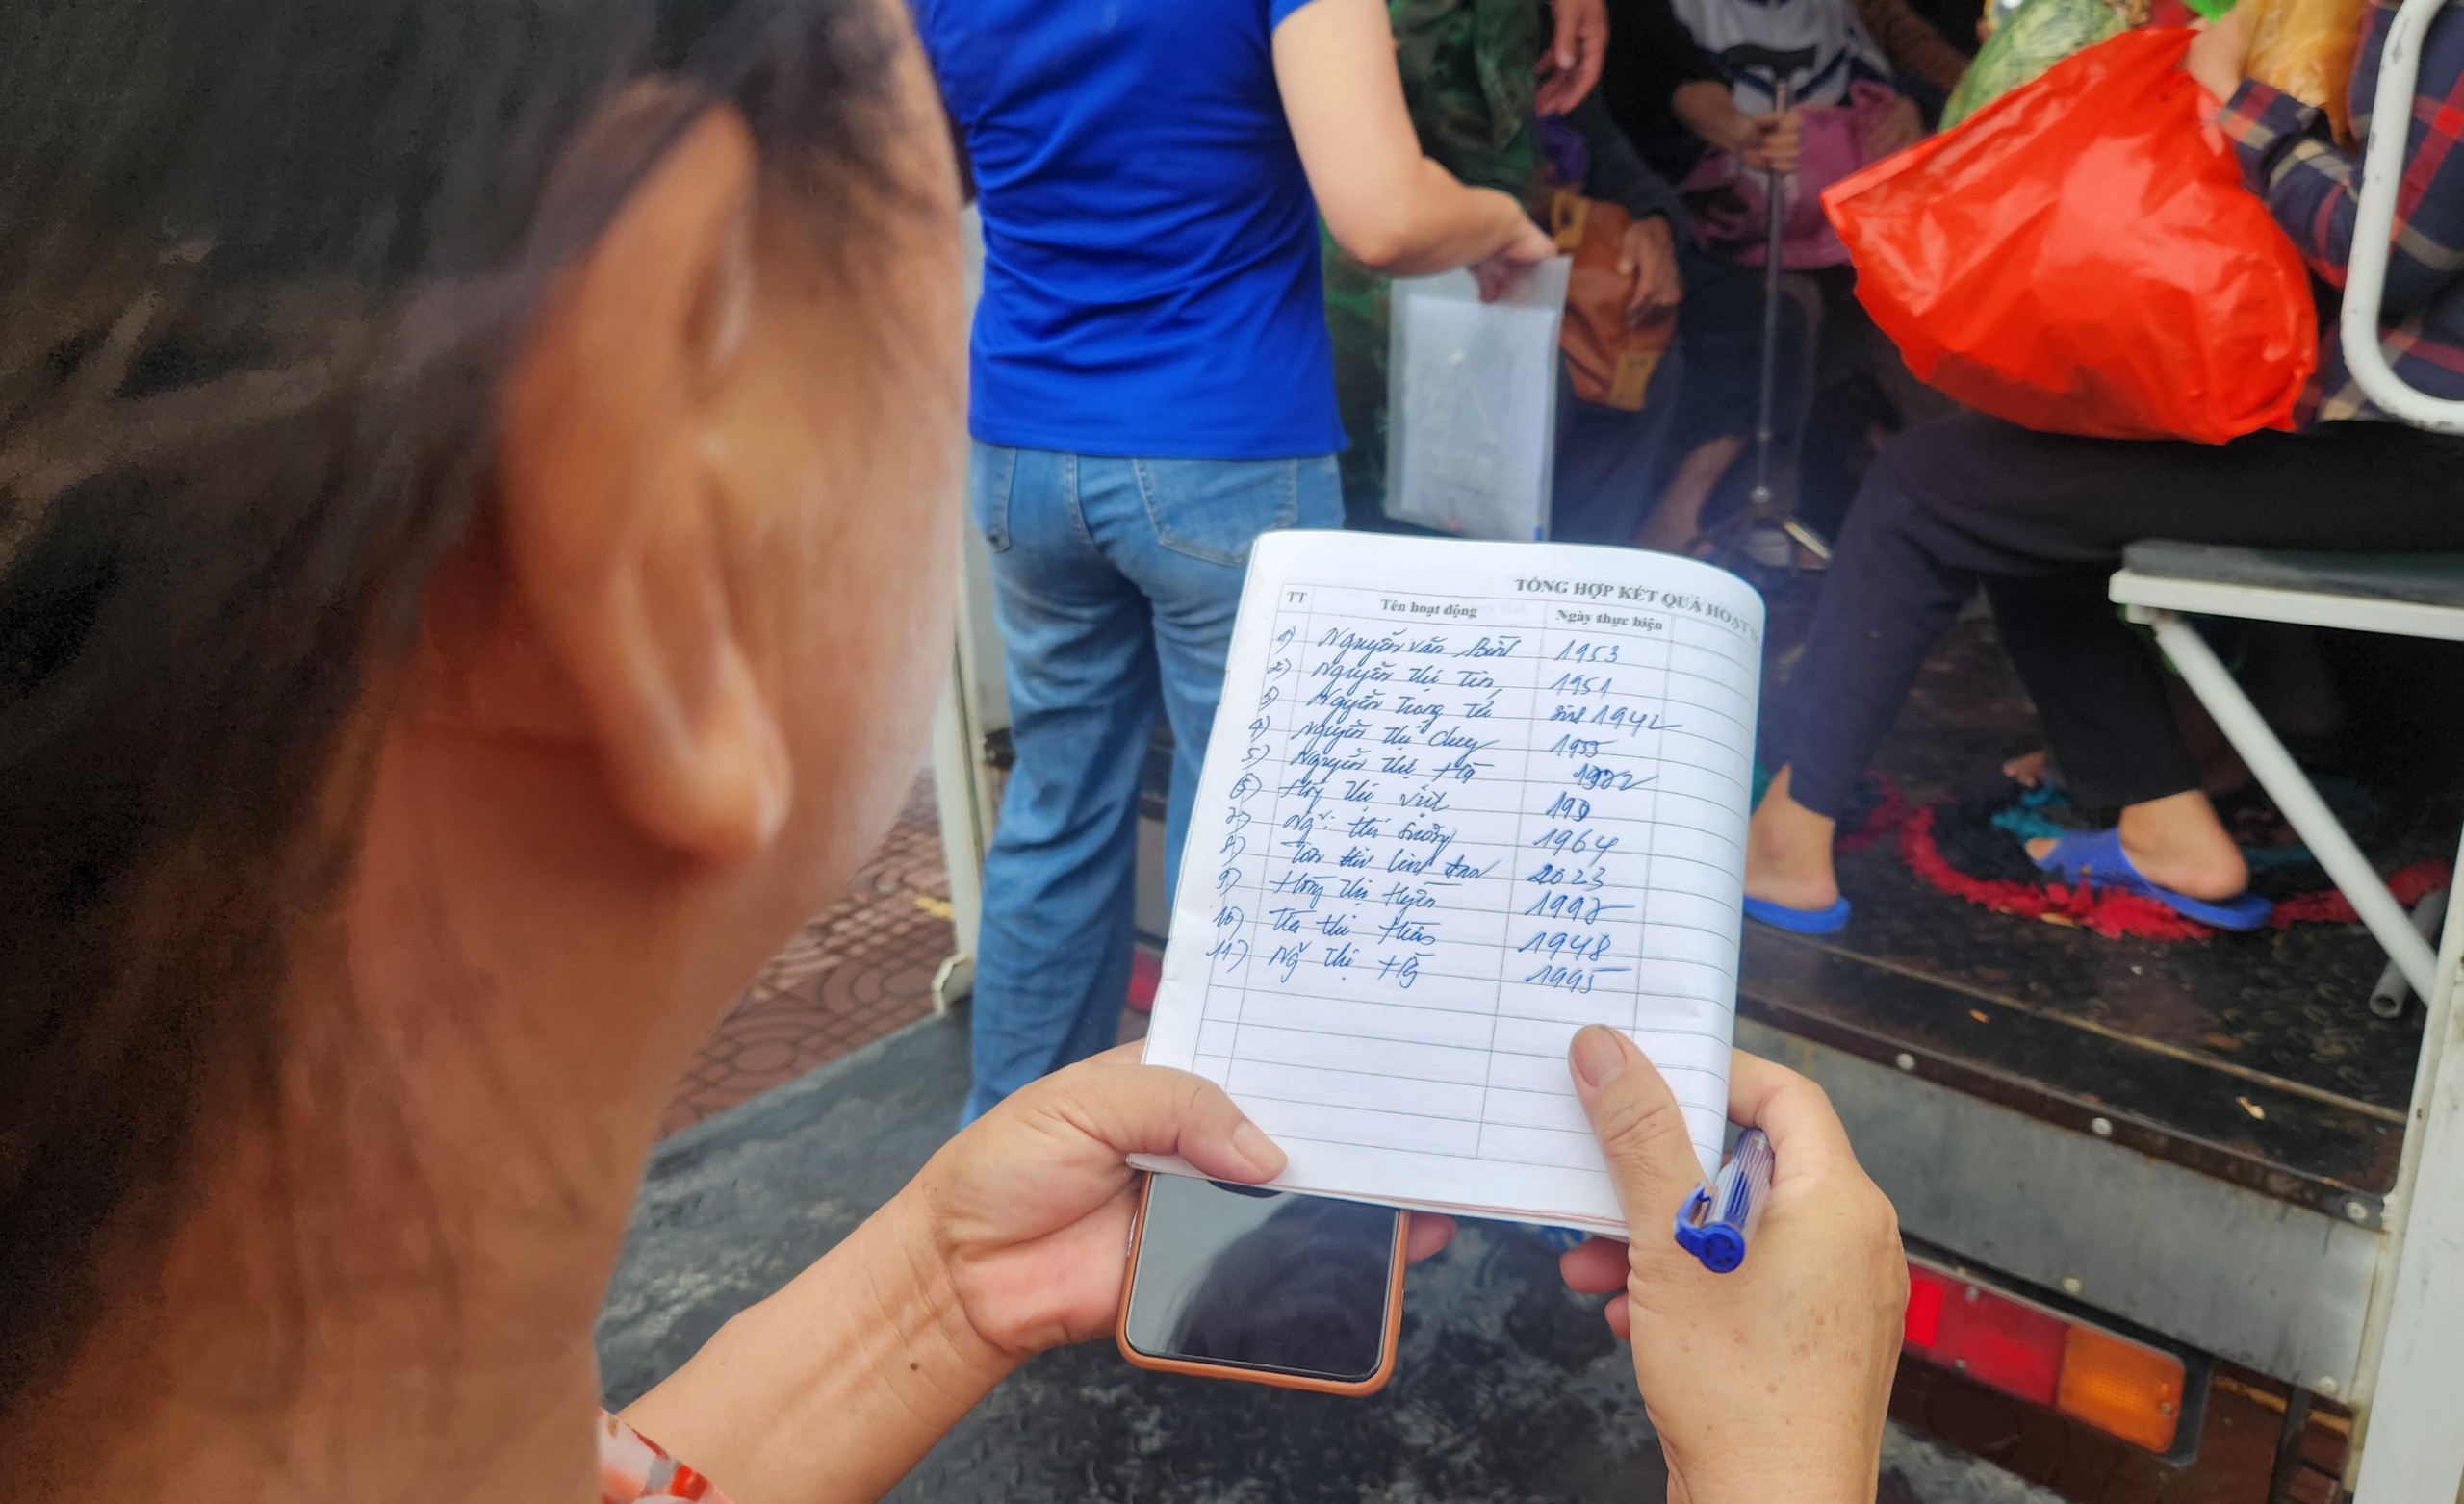 TỔNG HỢP KẾT QUẢ HOẠT
TT Tên hoạt động Ngày thực hiện
1) Nguyễn Văn Bình 1953
2) Nguyễn Thị Tín 1951
3) Nguyễn Trọng Tú sinh 1942
4) Nguyễn Thị Duy 1955
5) Nguyễn Thị Hà 1972
6) Thị 190
7) Ng~: thị 1964
8) 2023
9) Hồng Thị Huyền 1997
10) thị 1948
11) Ng~ Thị Hà 1995